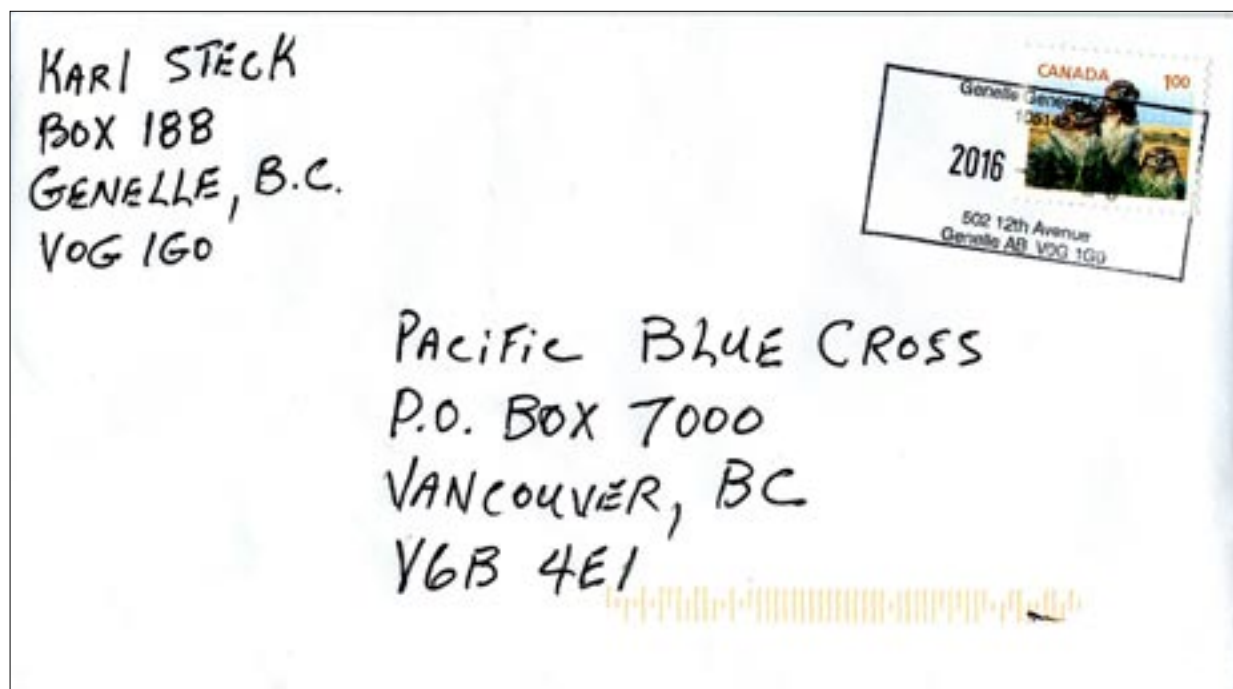 KARl STECK
BOX 188
GENELLE, B.C.
V0G 1G0
CANADA 1.00
Genelle General
2016
502 12th Avenue
Genelle AB V0G 1G0
PACiFiC BLUE CROSS
P.O. BOX 7000
VANCOUVER, BC
V6B 4E1